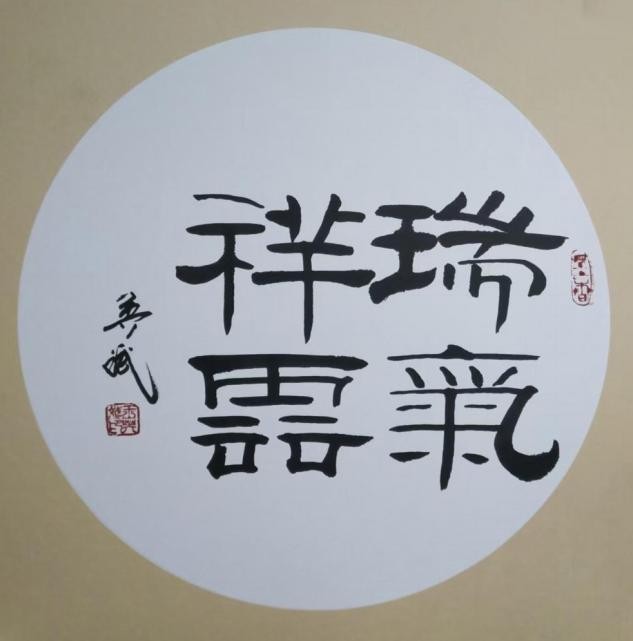 瑞氣
祥雲
英斌